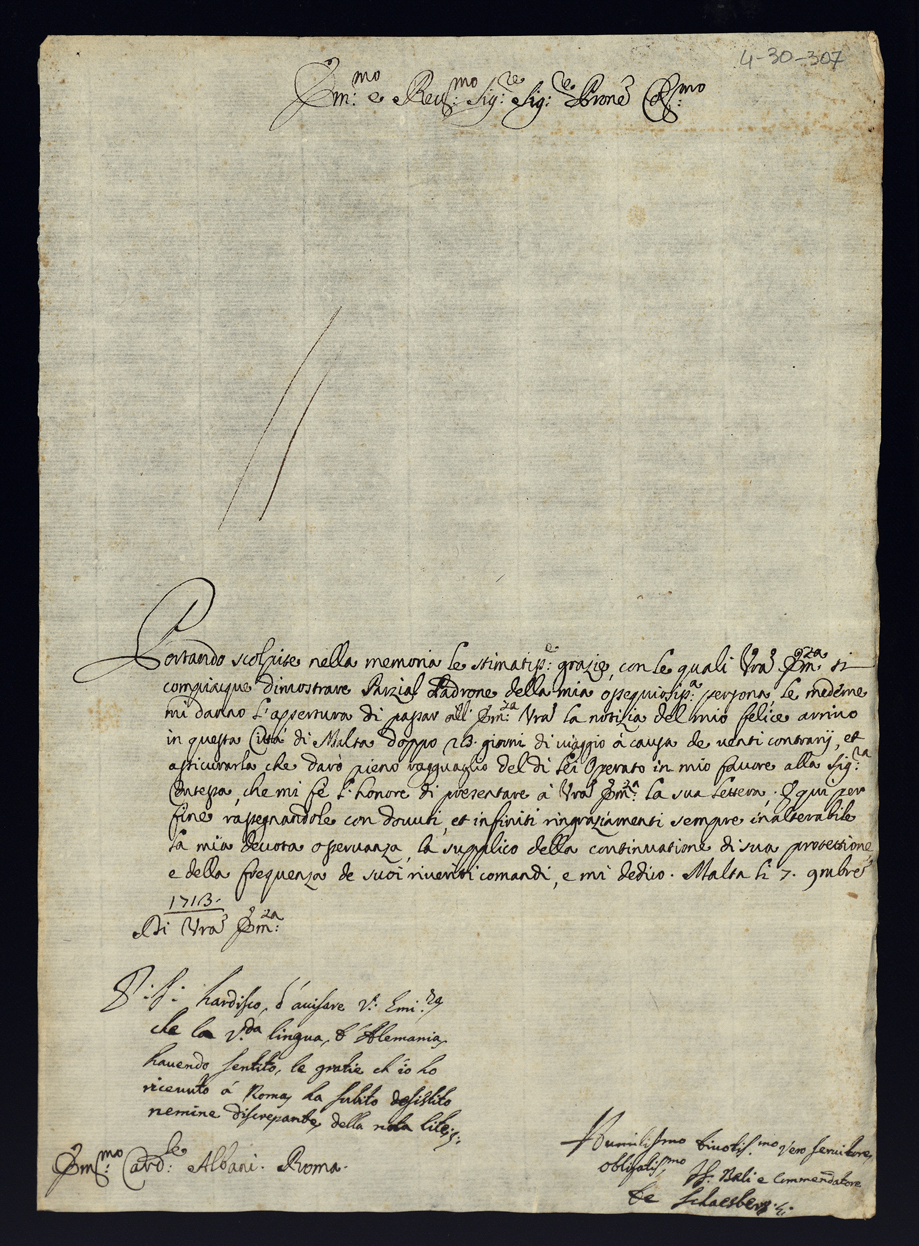 4-30-307
Em:mo e Rev:mo Sig:re Sig:re Prone C:mo
Portando scolpite nella memoria le stimatiss:e grazie, con le quali Vra Em:za si
compiacque dimostrare Parzial Padrone della mia ossequiosiss:a persona, le medeme
mi danno l'apertura di passar all' Em:za Vra la notizia del mio felice arrivo
in questa Città di Malta doppo 23. giorni di viaggio à causa de venti contrarij, et
assicurarla che darò pieno ragguaglio del di Lei Operato in mio favore alla Sig:ra
Contessa, che mi fè l'honore di presentare à Vra Em:za la sua lettera. E qui per
fine rassegnandole con dovuti, et infiniti ringraziamenti sempre inalterabile
la mia devota osservanza, la supplico della continuatione di sua protettione
e della frequenza de suoi riveriti comandi, e mi dedico. Malta li 7. 9mbre
1713.
Di Vra Em:za
P: S: hardisco, d'avisare V: Emi:za
che la V:da lingua, d'Alemania,
havendo sentito, le gratie ch'io ho
ricevuto à Roma, ha subito desistito
nemine discrepante, della nota lite:
Em:mo Card:le Albani. Roma.
Humilissimo divotis:mo vero servitore,
obligatis:mo Fr: Bali e Commendatore
de Schaesberg